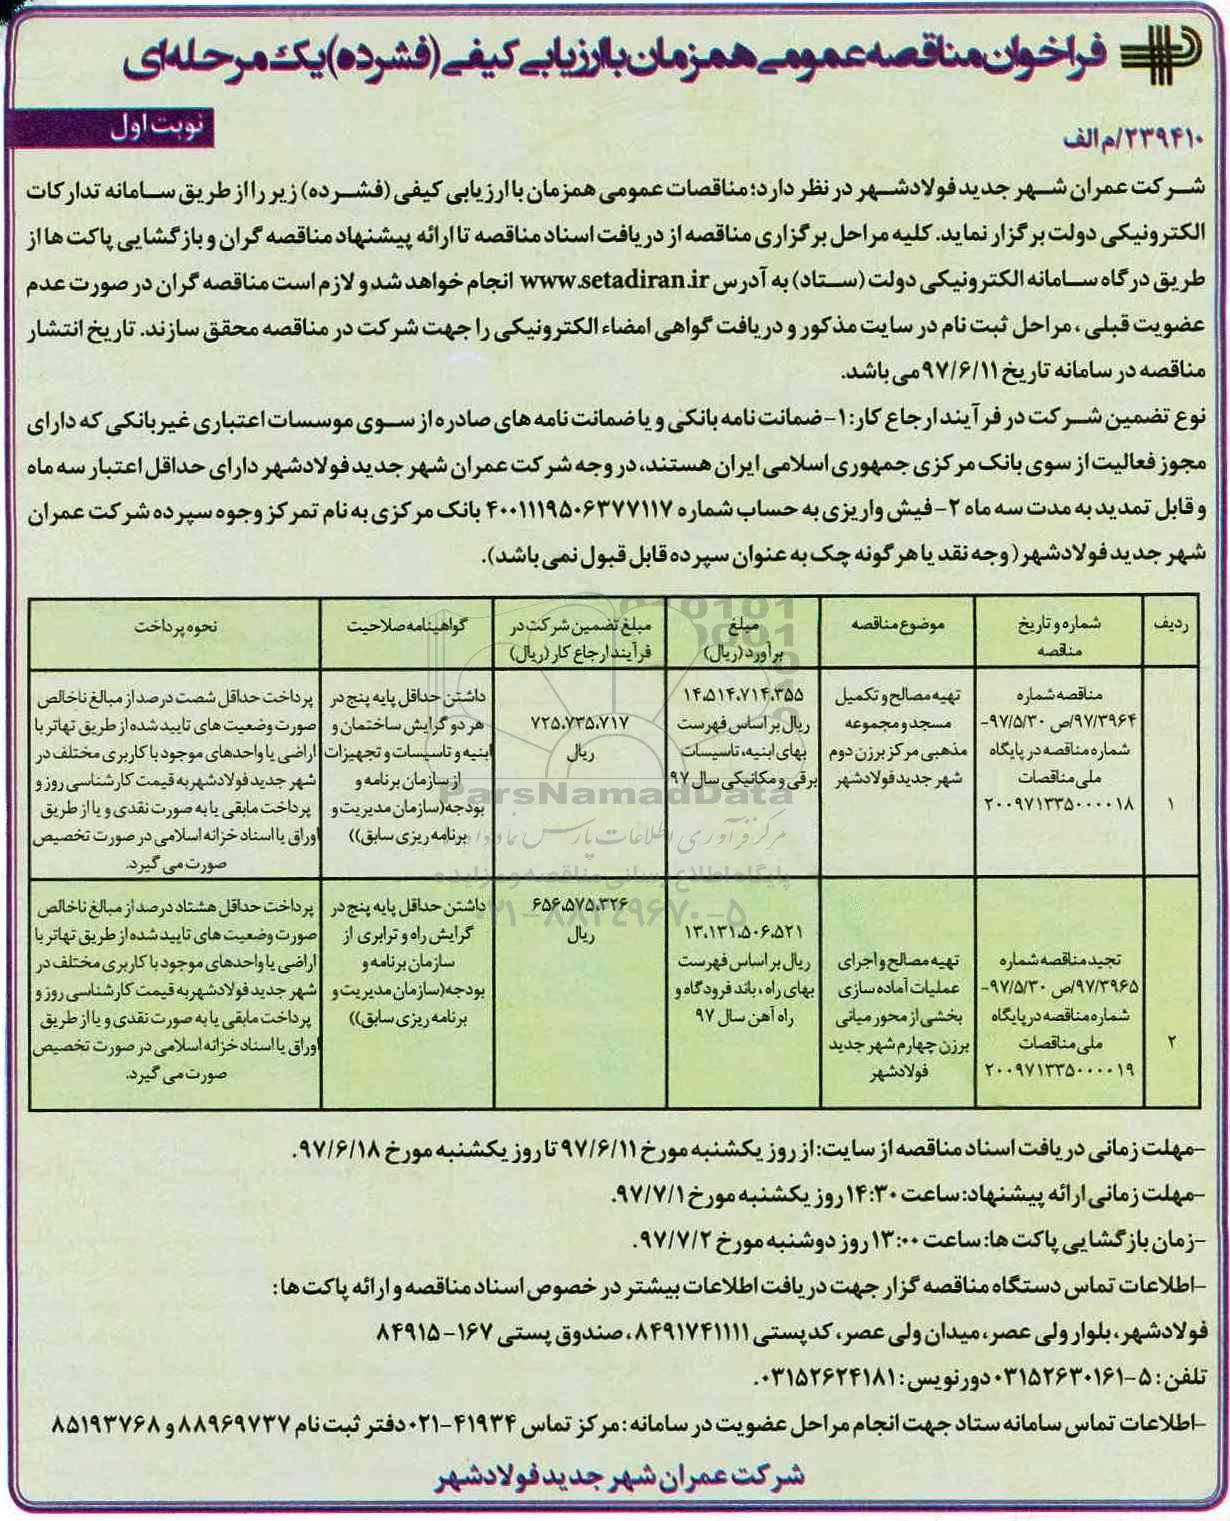 فراخوان مناقصه عمومی همزمان با ارزیابی کیفی (فشرده) یک مرحله‌ای
نوبت اول
۲۳۹۴۱۰/م الف
شرکت عمران شهر جدید فولادشهر در نظر دارد؛ مناقصات عمومی همزمان با ارزیابی کیفی (فشرده) زیر را از طریق سامانه تدارکات
الکترونیکی دولت برگزار نماید. کلیه مراحل برگزاری مناقصه از دریافت اسناد مناقصه تا ارائه پیشنهاد مناقصه گران و بازگشایی پاکت ها از
طریق درگاه سامانه الکترونیکی دولت (ستاد) به آدرس www.setadiran.ir انجام خواهد شد و لازم است مناقصه گران در صورت عدم
عضویت قبلی ، مراحل ثبت نام در سایت مذکور و دریافت گواهی امضاء الکترونیکی را جهت شرکت در مناقصه محقق سازند. تاریخ انتشار
مناقصه در سامانه تاریخ ۹۷/۶/۱۱ می باشد.
نوع تضمین شرکت در فرآیند ارجاع کار: ۱- ضمانت نامه بانکی و یا ضمانت نامه های صادره از سوی موسسات اعتباری غیربانکی که دارای
مجوز فعالیت از سوی بانک مرکزی جمهوری اسلامی ایران هستند، در وجه شرکت عمران شهر جدید فولادشهر دارای حداقل اعتبار سه ماه
و قابل تمدید به مدت سه ماه ۲- فیش واریزی به حساب شماره ۴۰۰۱۱۱۹۵۰۶۳۷۷۱۱۷ بانک مرکزی به نام تمرکز وجوه سپرده شرکت عمران
شهر جدید فولادشهر ( وجه نقد یا هرگونه چک به عنوان سپرده قابل قبول نمی باشد).
ردیف
شماره و تاریخ
مناقصه
موضوع مناقصه
مبلغ
برآورد (ریال)
مبلغ تضمین شرکت در
فرآیند ارجاع کار (ریال)
گواهینامه صلاحیت
نحوه پرداخت
۱
مناقصه شماره
۹۷/۳۹۶۴/ص ۹۷/۵/۳۰-
شماره مناقصه در پایگاه
ملی مناقصات
۲۰۰۹۷۱۳۳۵۰۰۰۰۱۸
تهیه مصالح و تکمیل
مسجد و مجموعه
مذهبی مرکز برزن دوم
شهر جدید فولادشهر
۱۴،۵۱۴،۷۱۴،۳۵۵
ریال بر اساس فهرست
بهای ابنیه، تاسیسات
برقی و مکانیکی سال ۹۷
۷۲۵،۷۳۵،۷۱۷
ریال
داشتن حداقل پایه پنج در
هر دو گرایش ساختمان و
ابنیه و تاسیسات و تجهیزات
از سازمان برنامه و
بودجه(سازمان مدیریت و
برنامه ریزی سابق))
پرداخت حداقل شصت درصد از مبالغ ناخالص
صورت وضعیت های تایید شده از طریق تهاتر با
اراضی یا واحدهای موجود با کاربری مختلف در
شهر جدید فولادشهر به قیمت کارشناسی روز و
پرداخت مابقی یا به صورت نقدی و یا از طریق
اوراق یا اسناد خزانه اسلامی در صورت تخصیص
صورت می گیرد.
۲
تجید مناقصه شماره
۹۷/۳۹۶۵/ص ۹۷/۵/۳۰-
شماره مناقصه در پایگاه
ملی مناقصات
۲۰۰۹۷۱۳۳۵۰۰۰۰۱۹
تهیه مصالح و اجرای
عملیات آماده سازی
بخشی از محور میانی
برزن چهارم شهر جدید
فولادشهر
۱۳،۱۳۱،۵۰۶،۵۲۱
ریال بر اساس فهرست
بهای راه ، باند فرودگاه و
راه آهن سال ۹۷
۶۵۶،۵۷۵،۳۲۶
ریال
داشتن حداقل پایه پنج در
گرایش راه و ترابری از
سازمان برنامه و
بودجه(سازمان مدیریت و
برنامه ریزی سابق))
پرداخت حداقل هشتاد درصد از مبالغ ناخالص
صورت وضعیت های تایید شده از طریق تهاتر با
اراضی یا واحدهای موجود با کاربری مختلف در
شهر جدید فولادشهر به قیمت کارشناسی روز و
پرداخت مابقی یا به صورت نقدی و یا از طریق
اوراق یا اسناد خزانه اسلامی در صورت تخصیص
صورت می گیرد.
ParsNamadData
مرکز فرآوری اطلاعات پارس نماد داده
پایگاه اطلاع رسانی مناقصه و مزایده
۰۲۱-۸۸۳۴۹۶۷۰-۵
-مهلت زمانی دریافت اسناد مناقصه از سایت: از روز یکشنبه مورخ ۹۷/۶/۱۱ تا روز یکشنبه مورخ ۹۷/۶/۱۸.
-مهلت زمانی ارائه پیشنهاد: ساعت ۱۴:۳۰ روز یکشنبه مورخ ۹۷/۷/۱.
-زمان بازگشایی پاکت ها: ساعت ۱۳:۰۰ روز دوشنبه مورخ ۹۷/۷/۲.
-اطلاعات تماس دستگاه مناقصه گزار جهت دریافت اطلاعات بیشتر در خصوص اسناد مناقصه و ارائه پاکت ها:
فولادشهر، بلوار ولی عصر، میدان ولی عصر، کدپستی ۸۴۹۱۷۴۱۱۱۱ ، صندوق پستی ۱۶۷- ۸۴۹۱۵
تلفن: ۵-۰۳۱۵۲۶۳۰۱۶۱ دورنویس: ۰۳۱۵۲۶۲۴۱۸۱.
-اطلاعات تماس سامانه ستاد جهت انجام مراحل عضویت در سامانه: مرکز تماس ۴۱۹۳۴-۰۲۱ دفتر ثبت نام ۸۸۹۶۹۷۳۷ و ۸۵۱۹۳۷۶۸
شرکت عمران شهر جدید فولادشهر